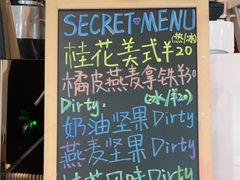 SECRET♥MENU
桂花美式(热/冰)¥20
橘皮燕麦拿铁¥30
Dirty: (冰/¥20)
奶油坚果Dirty
燕麦坚果Dirty
桂花风味Dirty